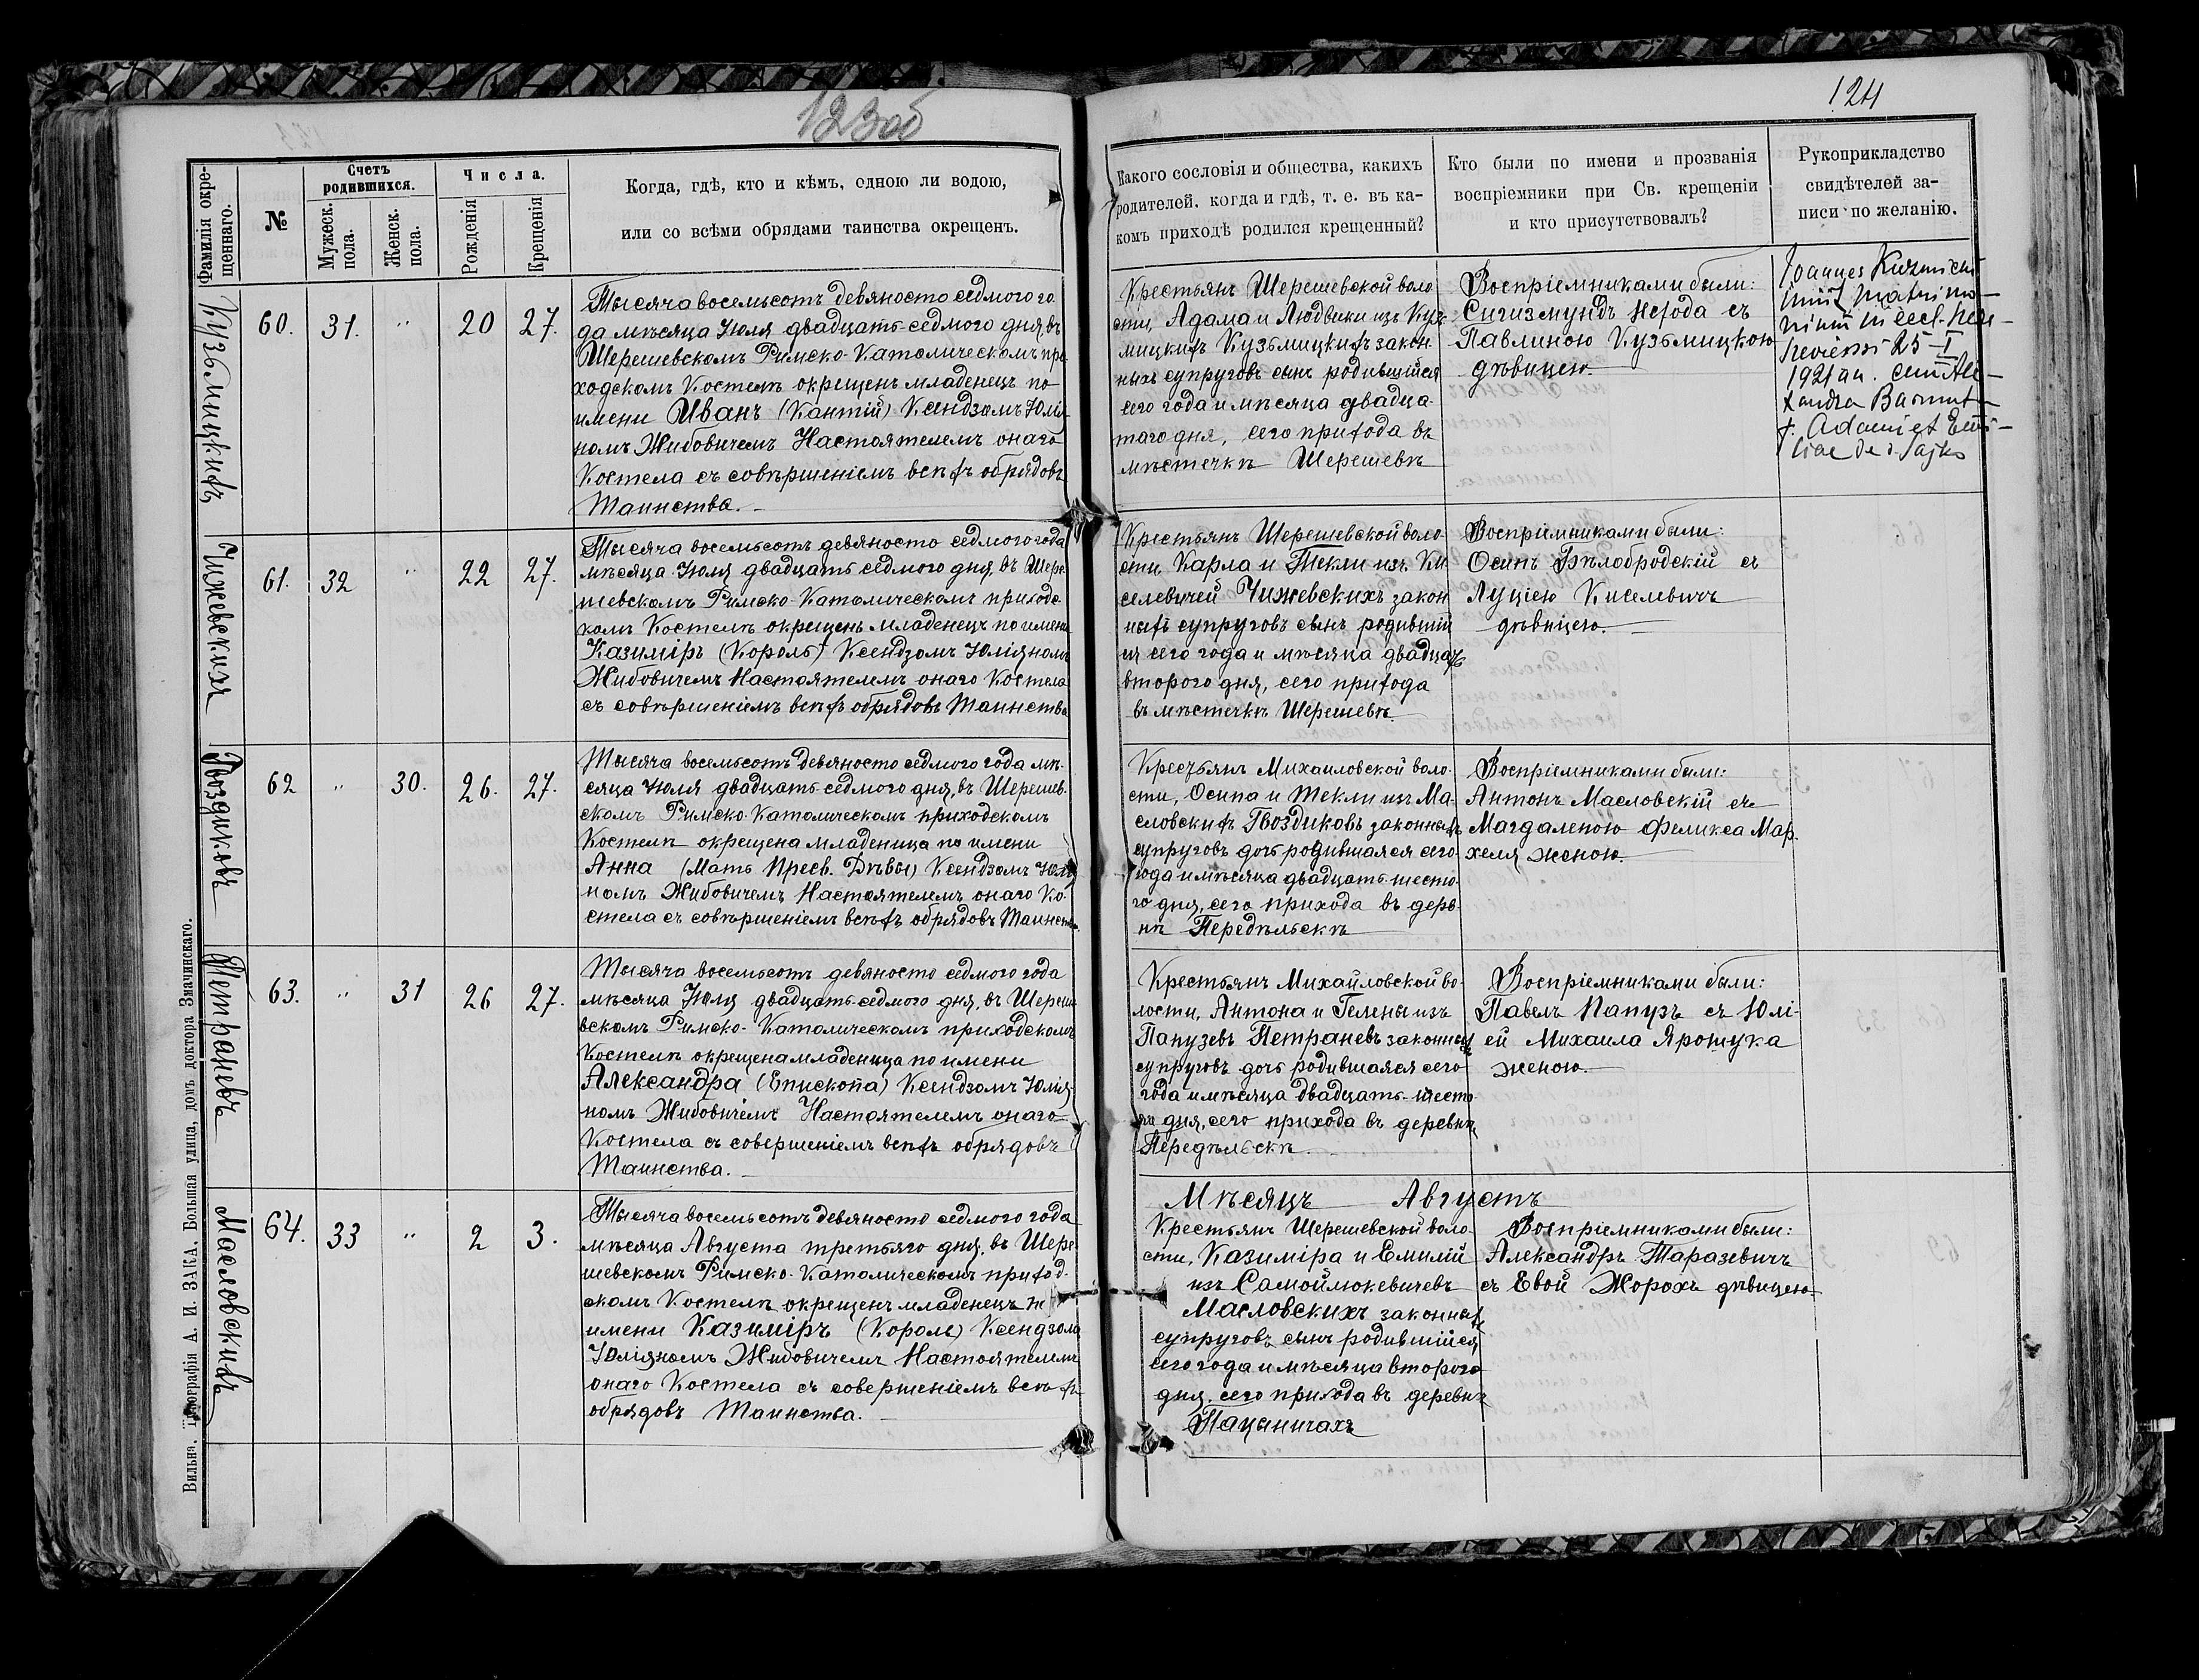 123об
124
Фамилія окре-
щеннаго.
№
Счетъ
родившихся.
Мужеск.
пола.
Женск.
пола.
Числа.
Рожденія
Крещенія
Когда, гдѣ, кто и кѣмъ, одною ли водою,
или со всѣми обрядами таинства окрещенъ.
Какого сословія и общества, какихъ
родителей, когда и гдѣ, т. е. въ ка-
комъ приходѣ родился крещенный?
Кто были по имени и прозванія
воспріемники при Св. крещеніи
и кто присутствовалъ?
Рукоприкладство
свидѣтелей за-
писи по желанію.
Кузьмицкихъ
60.
31.
"
20
27.
Тысяча восемьсотъ девяносто седмого го
да мѣсяца Іюля двадцать седмого дня, въ
Шерешевскомъ Римско-Католическомъ при
ходскомъ Костелѣ окрещенъ младенецъ по
имени Иванъ (Кантій) Ксендзомъ Юлія
номъ Жибовичемъ Настоятелемъ онаго
Костела съ совѣршеніемъ всѣхъ обрядовъ
Таинства.
Крестьянъ Шерешевской воло
сти, Адама и Людвики изъ Куз
мицкихъ Кузьмицкихъ закон
ныхъ супруговъ сынъ родившійся
сего года и мѣсяца двадца-
таго дня, сего прихода въ
мѣстечкѣ Шерешевѣ
Воспріемниками были:
Сигизмундъ съ
Павлиною Кузьмицкою
дѣвицею.
Joannes Kuzmicki
iniit matrimo-
nium in eccl.
25-I
1921 an. cum Ale-
xandra
f. Adami et Emi-
liae de d.
Чижевскихъ
61.
32
"
22
27.
Тысяча восемьсотъ девяносто седмого года
мѣсяца Іюля двадцать седмого дня, въ Шере
шевскомъ Римско-Католическомъ приходс
комъ Костелѣ окрещенъ младенецъ по имени
Казиміръ (Король) Ксендзомъ Юліяномъ
Жибовичемъ Настоятелемъ онаго Костела
съ совѣршеніемъ всѣхъ обрядовъ Таинства
Крестьянъ Шерешевской воло-
сти Карла и Текли изъ Ки
селевичей Чижевскихъ закон
ныхъ супруговъ сынъ родившій
ся сего года и мѣсяца двадцать
второго дня, сего прихода
въ мѣстечкѣ Шерешевѣ.
Воспріемниками были:
Осипъ Бѣлобродскій съ
Луціею Киселевичъ
дѣвицею.
Гвоздиковъ
62
"
30.
26.
27.
Тысяча восемьсотъ девяносто седмого года мѣ-
сяца Іюля двадцать седмого дня, въ Шерешев-
скомъ Римско-Католическомъ приходскомъ
Костелѣ окрещена младеница по имени
Анна (Мать Пресв. Дѣвы) Ксендзомъ Юлія
номъ Жибовичемъ Настоятелемъ онаго Ко-
стела съ совѣршеніемъ всѣхъ обрядовъ Таинства.
Крестьянъ Михаиловской воло-
сти, Осипа и Текли изъ Ма-
словскихъ Гвоздиковъ законныхъ
супруговъ дочь родившаяся сего
года и мѣсяца двадцать шесто-
го дня, сего прихода въ дерев-
нѣ Передѣльскѣ
Воспріемниками были:
Антонъ Масловскій съ
Магдаленою Феликса Мар-
хеля женою.
Петраневъ
63.
"
31
26
27.
Тысяча восемьсотъ девяносто седмого года
мѣсяца Іюля двадцать седмого дня, въ Шереше
вскомъ Римско-Католическомъ приходскомъ
Костелѣ окрещена младеница по имени
Александра (Епископа) Ксендзомъ Юлія
номъ Жибовичемъ Настоятелемъ онаго
Костела съ совершеніемъ всѣхъ обрядовъ
Таинства.
Крестьянъ Михайловской во-
лости, Антона и Гелены изъ
Папузевъ Петраневъ законныхъ
супруговъ дочь родившаяся сего
года и мѣсяца двадцать-шесто
го дня, сего прихода въ деревнѣ
Передѣльскѣ.
Воспріемниками были:
Павелъ Папузъ съ Юлі-
ей Михаила Ярошука
женою.
Мѣсяцъ Августъ
Масловскихъ
64.
33
"
2
3.
Тысяча восемьсотъ девяносто седмого года
мѣсяца Августа третьяго дня, въ Шере-
шевскомъ Римско-Католическомъ приход-
скомъ Костелѣ окрещенъ младенецъ по
имени Казиміръ (Король) Ксендзомъ
Юліяномъ Жибовичемъ Настоятелемъ
онаго Костела съ совершеніемъ всѣхъ
обрядовъ Таинства.
Крестьянъ Шерешевской воло-
сти, Казиміра и Емиліи
изъ Самойлюкевичевъ
Масловскихъ законныхъ
супруговъ сынъ родившійся
сего года и мѣсяца второго
дня, сего прихода въ деревнѣ
Пацыничахъ
Воспріемниками были:
Александръ Таразевичъ
съ Евой Жорохъ дѣвицею
Вильна. Типографія А. И. ЗАКА. Большая улица, домъ доктора Змачинскаго.